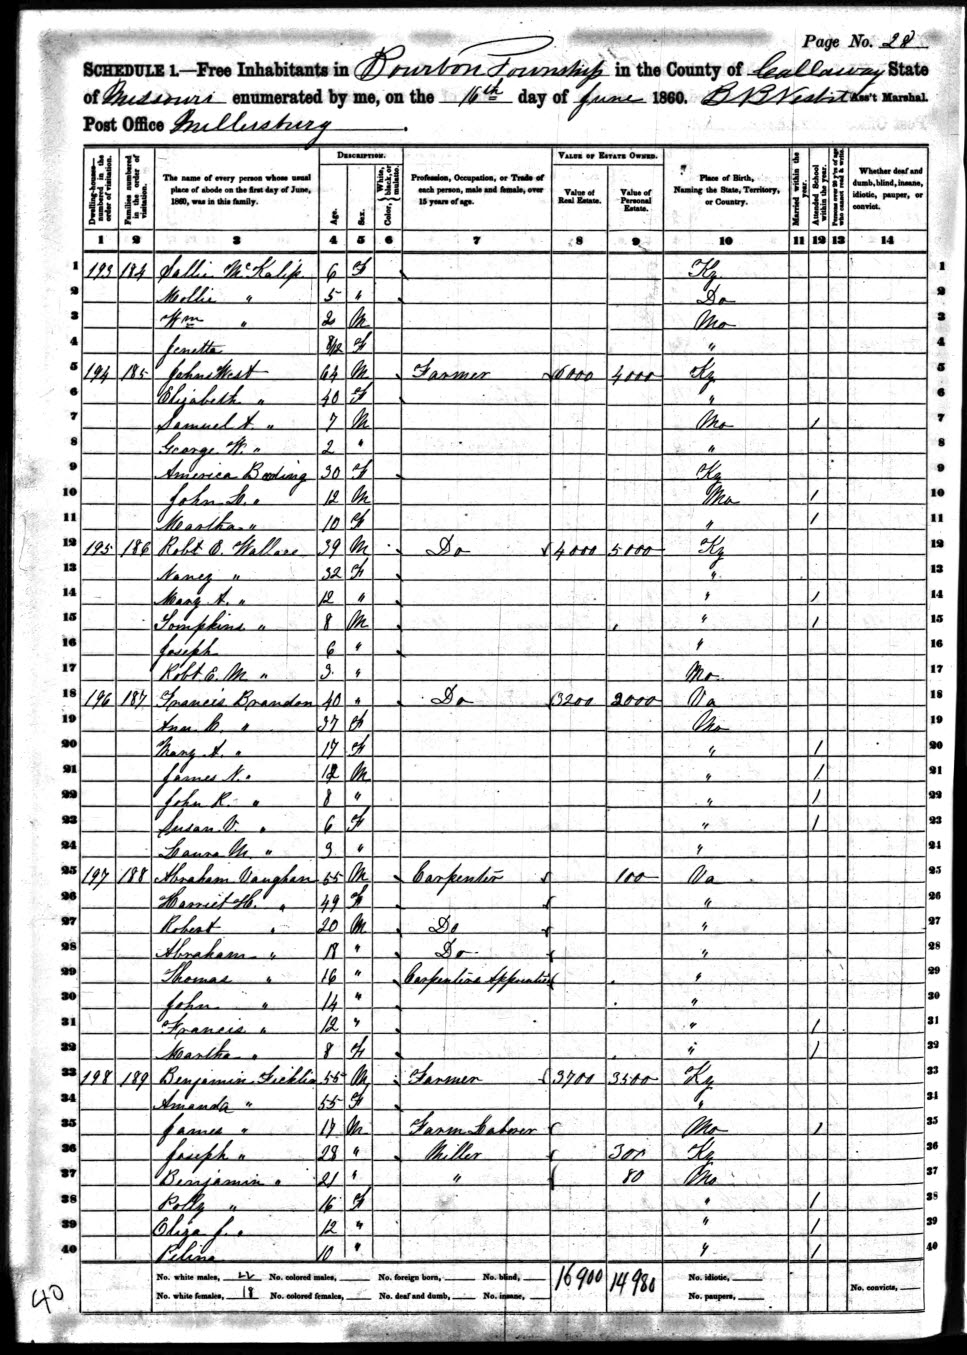 Page No. 28
SCHEDULE 1.—Free Inhabitants in Bourbon Township in the County of Callaway State
of Missouri enumerated by me, on the 16th day of June 1860. B N Nesbit Ass't Marshal.
Post Office Millersburg.
Dwelling-houses—numbered in the order of visitation.
Families numbered in the order of visitation.
The name of every person whose usual place of abode on the first day of June, 1860, was in this family.
DESCRIPTION.
Age.
Sex.
Color, White, black, or mulatto.
Profession, Occupation, or Trade of each person, male and female, over 15 years of age.
VALUE OF ESTATE OWNED.
Value of Real Estate.
Value of Personal Estate.
Place of Birth, Naming the State, Territory, or Country.
Married within the year.
Attended School within the year.
Persons over 20 y'rs of age who cannot read & write.
Whether deaf and dumb, blind, insane, idiotic, pauper, or convict.
1 2 3 4 5 6 7 8 9 10 11 12 13 14
1 193 184 Sallie McKalip 6 F Ky 1
2 Mollie " 5 " Do 2
3 Wm " 2 M Mo 3
4 Jenetta 8/12 F " 4
5 194 185 John West 64 M Farmer 6000 4000 Ky 5
6 Elizabeth " 40 F " 6
7 Samuel A. " 7 M Mo / 7
8 George W. " 2 " " 8
9 America Bowling 30 F Ky 9
10 John L. " 12 M Mo / 10
11 Martha " 10 F " / 11
12 195 186 Robt E. Wallace 39 M Do 4000 5000 Ky 12
13 Nancy " 32 F " 13
14 Mary A. " 12 " " / 14
15 Tompkins " 8 M " / 15
16 Joseph 6 " " 16
17 Robt E. M " 3 " Mo 17
18 196 187 Francis Brandon 40 " Do 3200 2000 Va 18
19 Ann " 37 F Mo 19
20 Mary A. " 17 F " / 20
21 James N. " 12 M " / 21
22 John R. " 8 " " / 22
23 Susan V. " 6 F " / 23
24 Laura M " 3 " " 24
25 197 188 Abraham Vaughan 55 M Carpenter 100 Va 25
26 Harriet H. " 49 F " 26
27 Robert " 20 M Do " 27
28 Abraham " 18 " Do " 28
29 Thomas " 16 " Carpenters Apprentice " 29
30 John " 14 " " 30
31 Francis " 12 " " / 31
32 Martha " 8 F " / 32
33 198 189 Benjamin Ficklin 55 M Farmer 3700 3500 Ky 33
34 Amanda " 55 F " 34
35 James " 17 M Farm Laborer Mo / 35
36 Joseph " 23 " Miller 300 Ky 36
37 Benjamin " 21 " " 80 Mo 37
38 Polly " 16 F " / 38
39 Eliza J. " 12 " " / 39
40 Pelina 10 " " / 40
No. white males, 22 No. colored males, No. foreign born, No. blind, 16900 14980 No. idiotic,
No. white females, 18 No. colored females, No. deaf and dumb, No. insane, No. paupers, No. convicts,
40